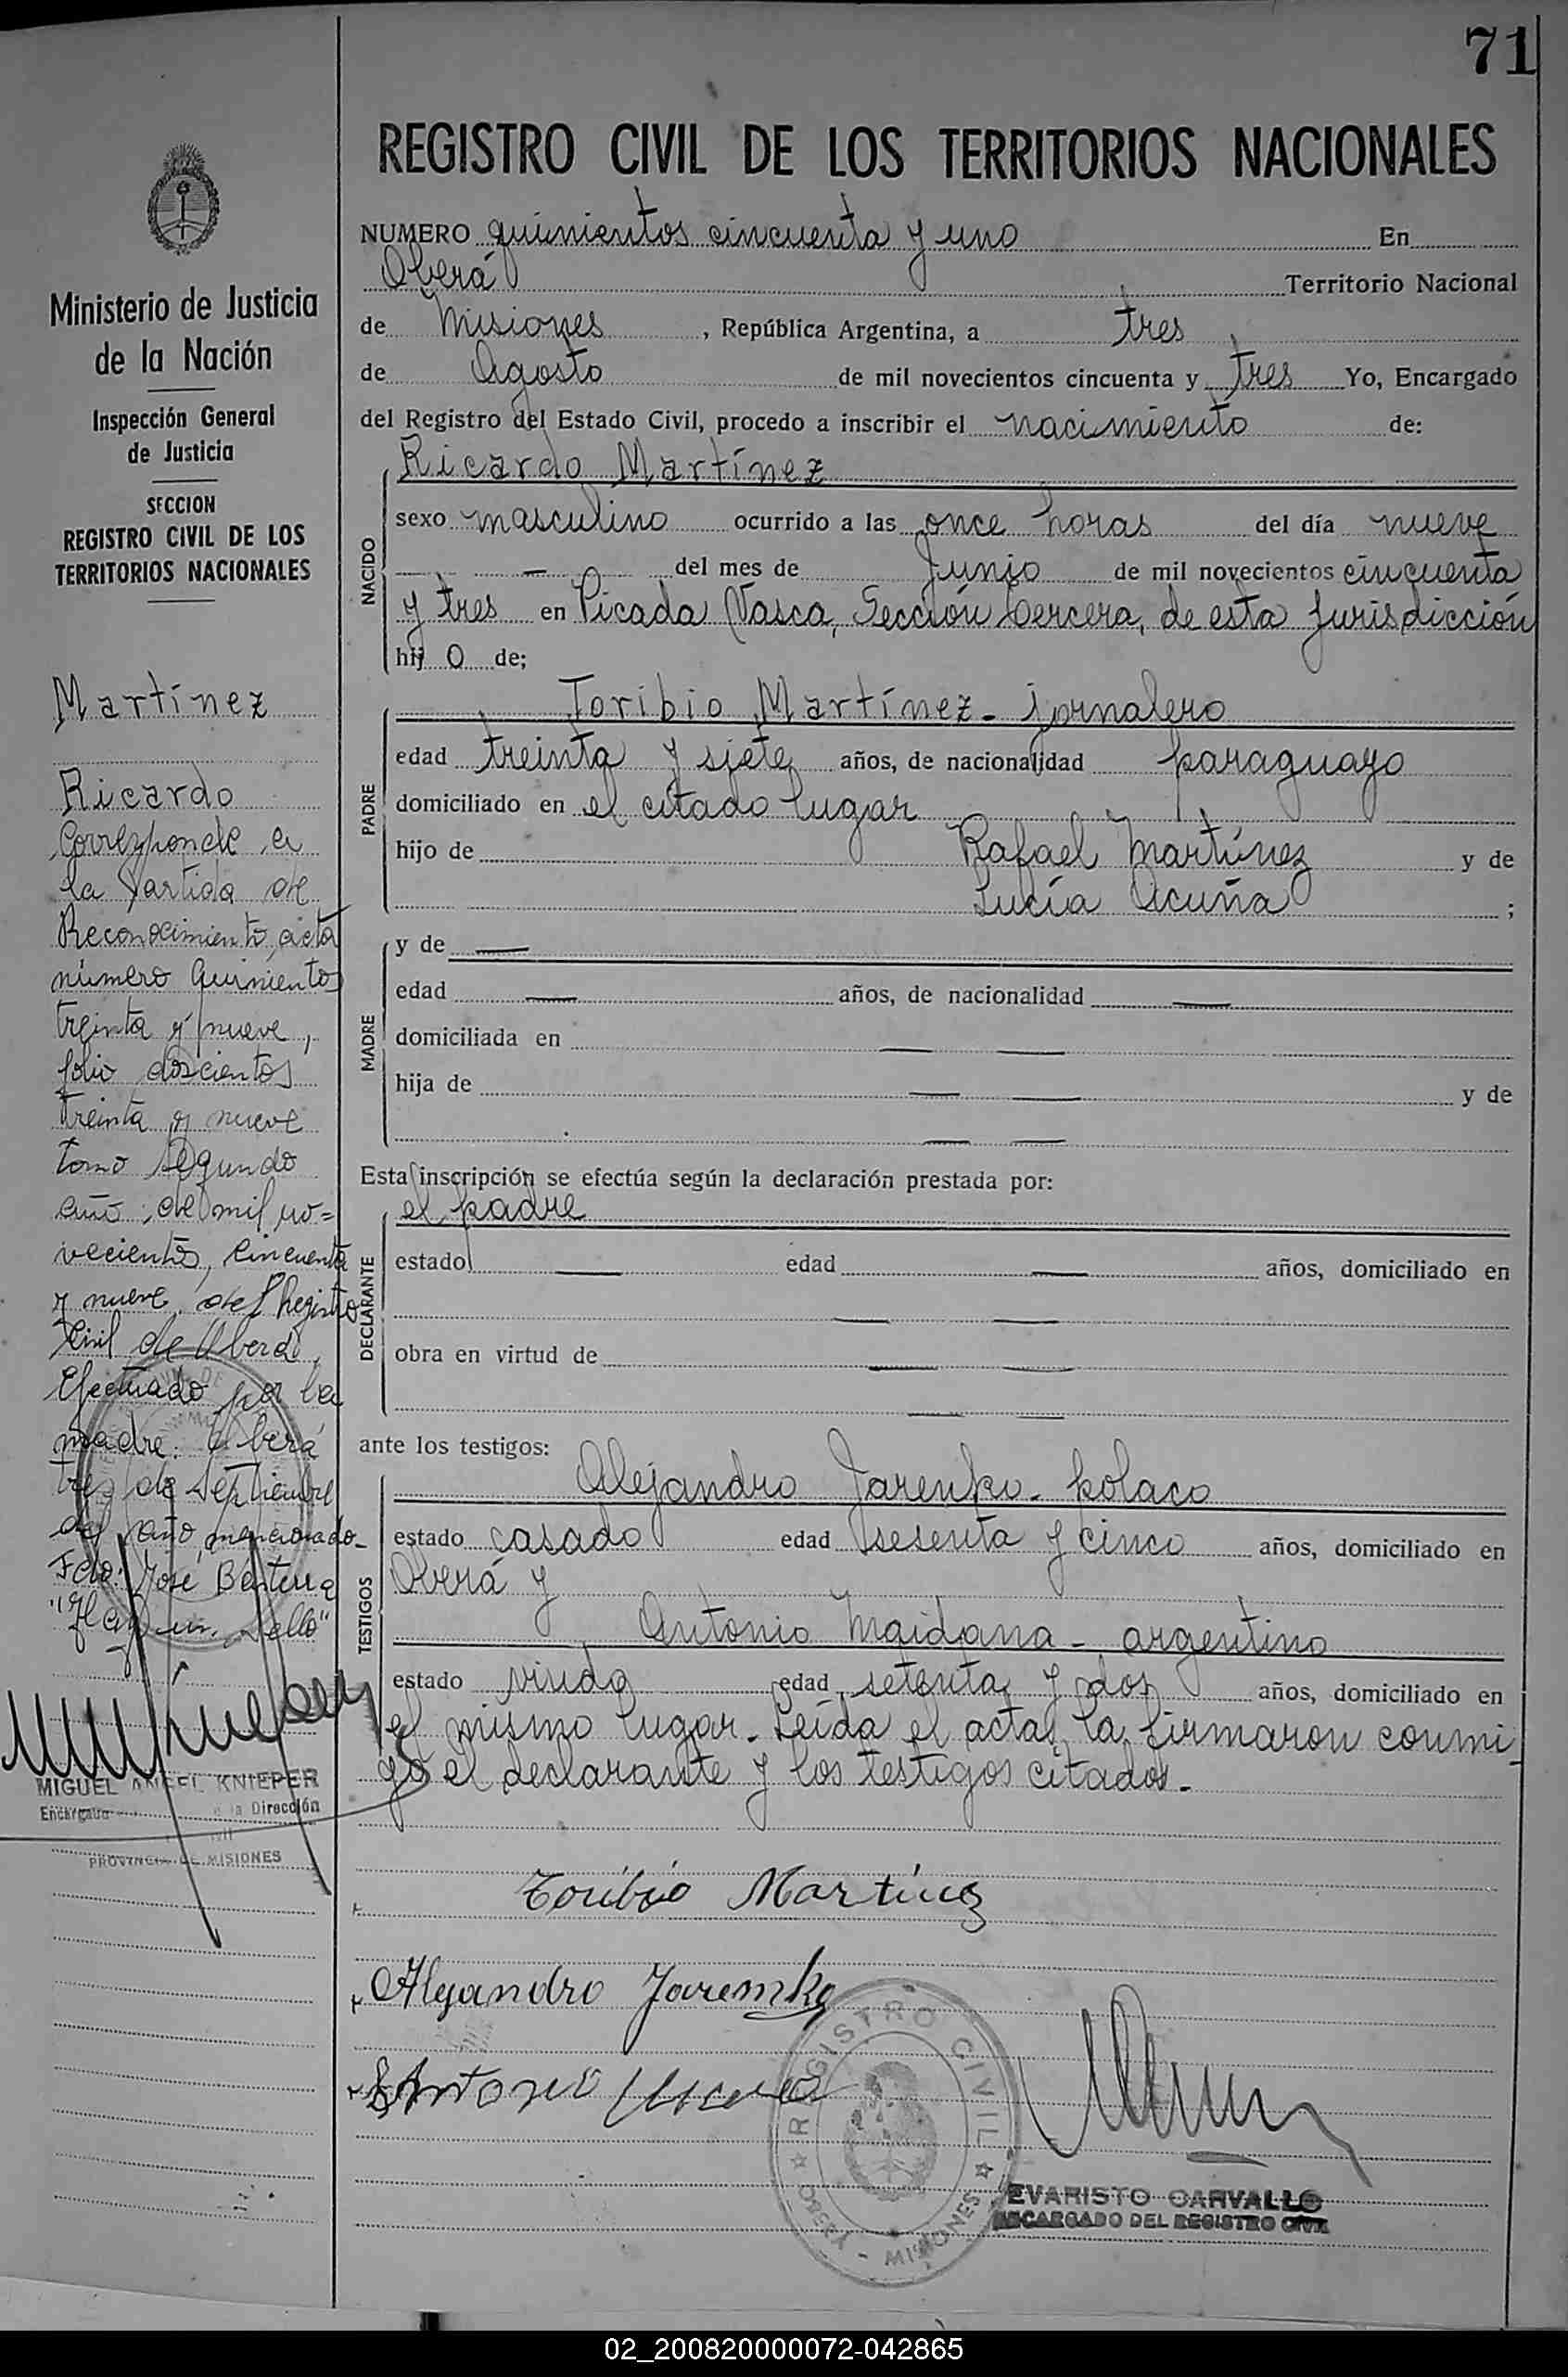 71
REGISTRO CIVIL DE LOS TERRITORIOS NACIONALES
NUMERO quinientos cincuenta y uno En
Oberá Territorio Nacional
de Misiones, República Argentina, a tres
de Agosto de mil novecientos cincuenta y tres Yo, Encargado
del Registro del Estado Civil, procedo a inscribir el nacimiento de:
Ricardo Martínez
NACIDO
sexo masculino ocurrido a las once horas del día nueve
— del mes de Junio de mil novecientos cincuenta
y tres en Picada Vasca, Sección tercera, de esta jurisdicción
hij o de;
Toribio Martínez - jornalero
PADRE
edad treinta y siete años, de nacionalidad paraguayo
domiciliado en el citado lugar
hijo de Rafael Martínez y de
Lucía Acuña ;
MADRE
y de —
edad — años, de nacionalidad —
domiciliada en — —
hija de — — y de
— —
Esta inscripción se efectúa según la declaración prestada por:
el padre
DECLARANTE
estado — edad — años, domiciliado en
— —
obra en virtud de — —
— —
ante los testigos:
Alejandro Jarenko - polaco
TESTIGOS
estado casado edad sesenta y cinco años, domiciliado en
Oberá y
Antonio Maidana - argentino
estado viudo edad setenta y dos años, domiciliado en
el mismo lugar. Leída el acta, la firmaron conmi-
go el declarante y los testigos citados.
Toribio Martínez
Alejandro Jaremko
Antonio
REGISTRO CIVIL
MISIONES
EVARISTO CARVALLO
ENCARGADO DEL REGISTRO CIVIL
Ministerio de Justicia
de la Nación
Inspección General
de Justicia
SECCION
REGISTRO CIVIL DE LOS
TERRITORIOS NACIONALES
Martínez
Ricardo
Corresponde a
la Partida de
Reconocimiento, acta
número Quinientos
treinta y nueve,
folio doscientos
treinta y nueve
tomo segundo
año de mil no=
vecientos, cincuenta
y nueve del Registro
Civil de Oberá,
Efectuado por la
madre. Oberá
tres de Septiembre
del año mencionado-
Fdo: José
"Hay un Sello"
MIGUEL ANGEL KNIEPER
Encargado la Dirección
PROVINCIA DE MISIONES
02_200820000072-042865